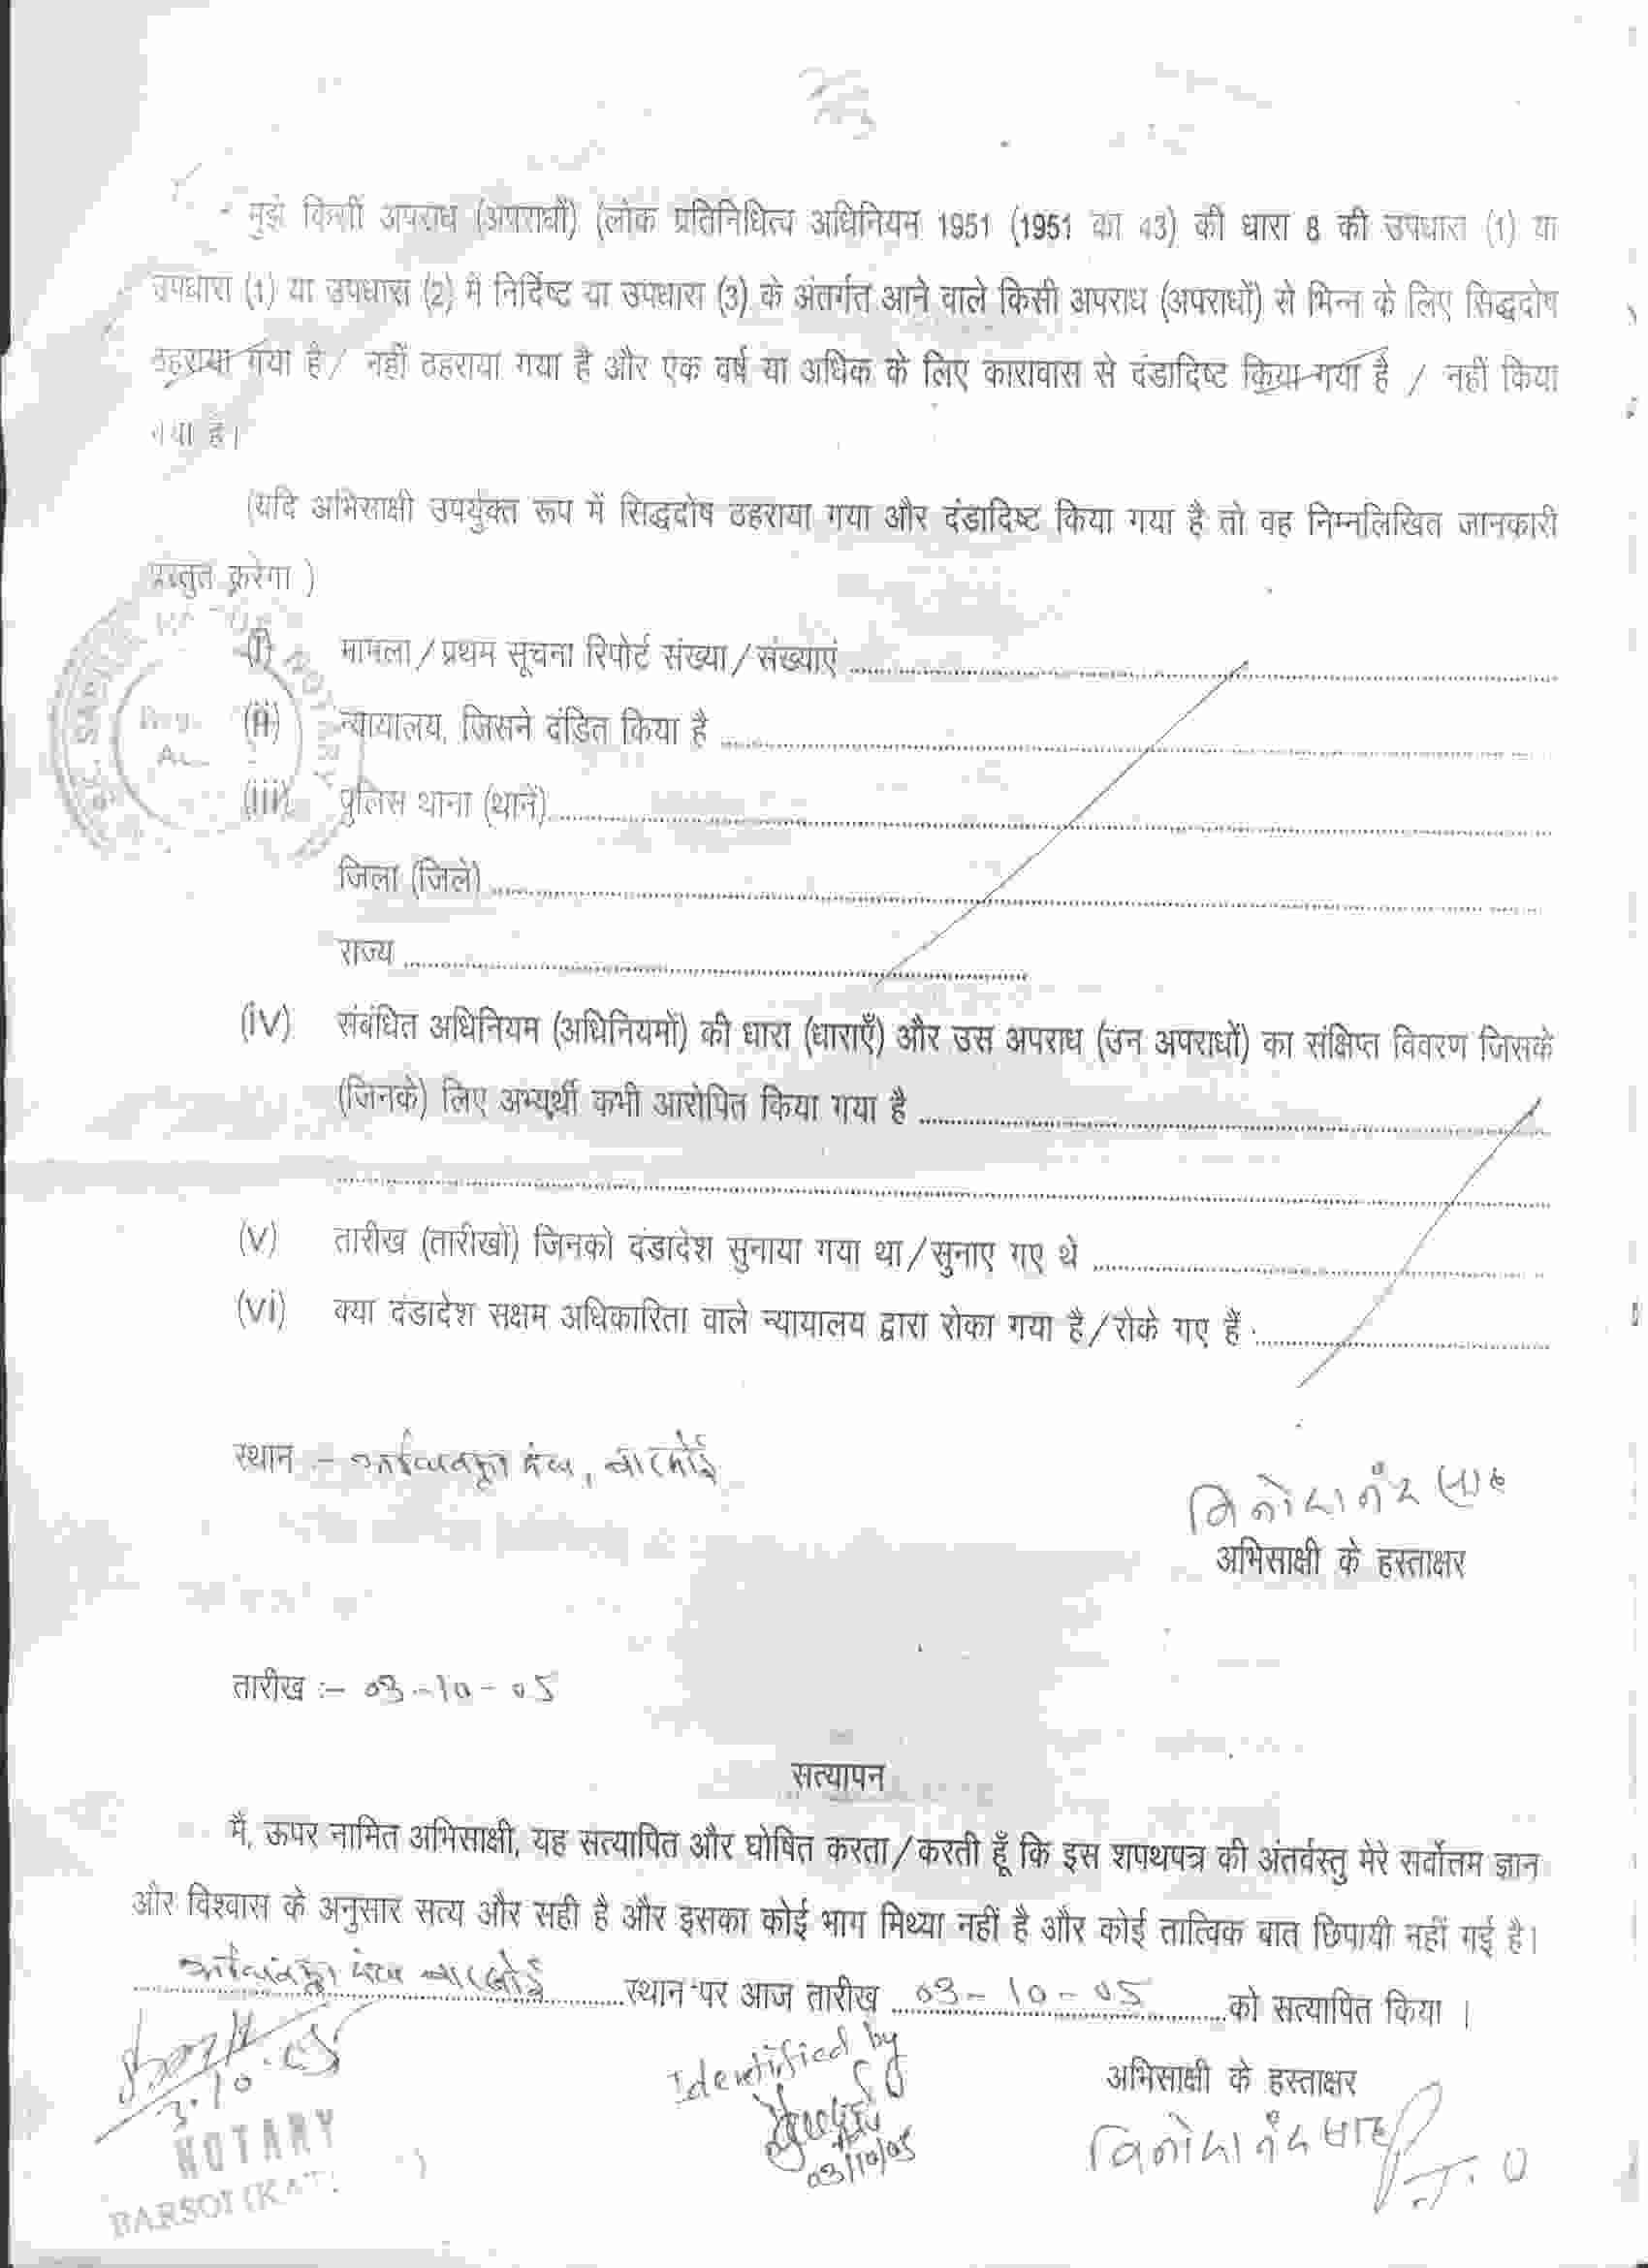 मुझे किसी अपराध (अपराधों) (लोक प्रतिनिधित्व अधिनियम 1951 (1951 का 43) की धारा 8 की उपधारा (1) या
उपधारा (1) या उपधारा (2) में निर्दिष्ट या उपधारा (3) के अंतर्गत आने वाले किसी अपराध (अपराधों) से भिन्न के लिए सिद्धदोष
ठहराया गया है / नहीं ठहराया गया है और एक वर्ष या अधिक के लिए कारावास से दंडादिष्ट किया गया है / नहीं किया
गया है।
(यदि अभिसाक्षी उपर्युक्त रूप में सिद्धदोष ठहराया गया और दंडादिष्ट किया गया है तो वह निम्नलिखित जानकारी
प्रस्तुत करेगा )
(i) मामला / प्रथम सूचना रिपोर्ट संख्या / संख्याएं
(ii) न्यायालय, जिसने दंडित किया है
(iii) पुलिस थाना (थाने)
जिला (जिले)
राज्य
(iv) संबंधित अधिनियम (अधिनियमों) की धारा (धाराएँ) और उस अपराध (उन अपराधों) का संक्षिप्त विवरण जिसके
(जिनके) लिए अभ्यर्थी कभी आरोपित किया गया है
(v) तारीख (तारीखों) जिनको दंडादेश सुनाया गया था / सुनाए गए थे
(vi) क्या दंडादेश सक्षम अधिकारिता वाले न्यायालय द्वारा रोका गया है / रोके गए हैं
स्थान :-
विनोदानंद साह
अभिसाक्षी के हस्ताक्षर
तारीख :- 03-10-05
सत्यापन
मैं, ऊपर नामित अभिसाक्षी, यह सत्यापित और घोषित करता / करती हूँ कि इस शपथपत्र की अंतर्वस्तु मेरे सर्वोत्तम ज्ञान
और विश्वास के अनुसार सत्य और सही है और इसका कोई भाग मिथ्या नहीं है और कोई तात्विक बात छिपायी नहीं गई है।
स्थान पर आज तारीख 03-10-05 को सत्यापित किया ।
Identified by
अभिसाक्षी के हस्ताक्षर
विनोदानंद साह
3.10.05
03/10/05
NOTARY
BARSOI
NOTARY